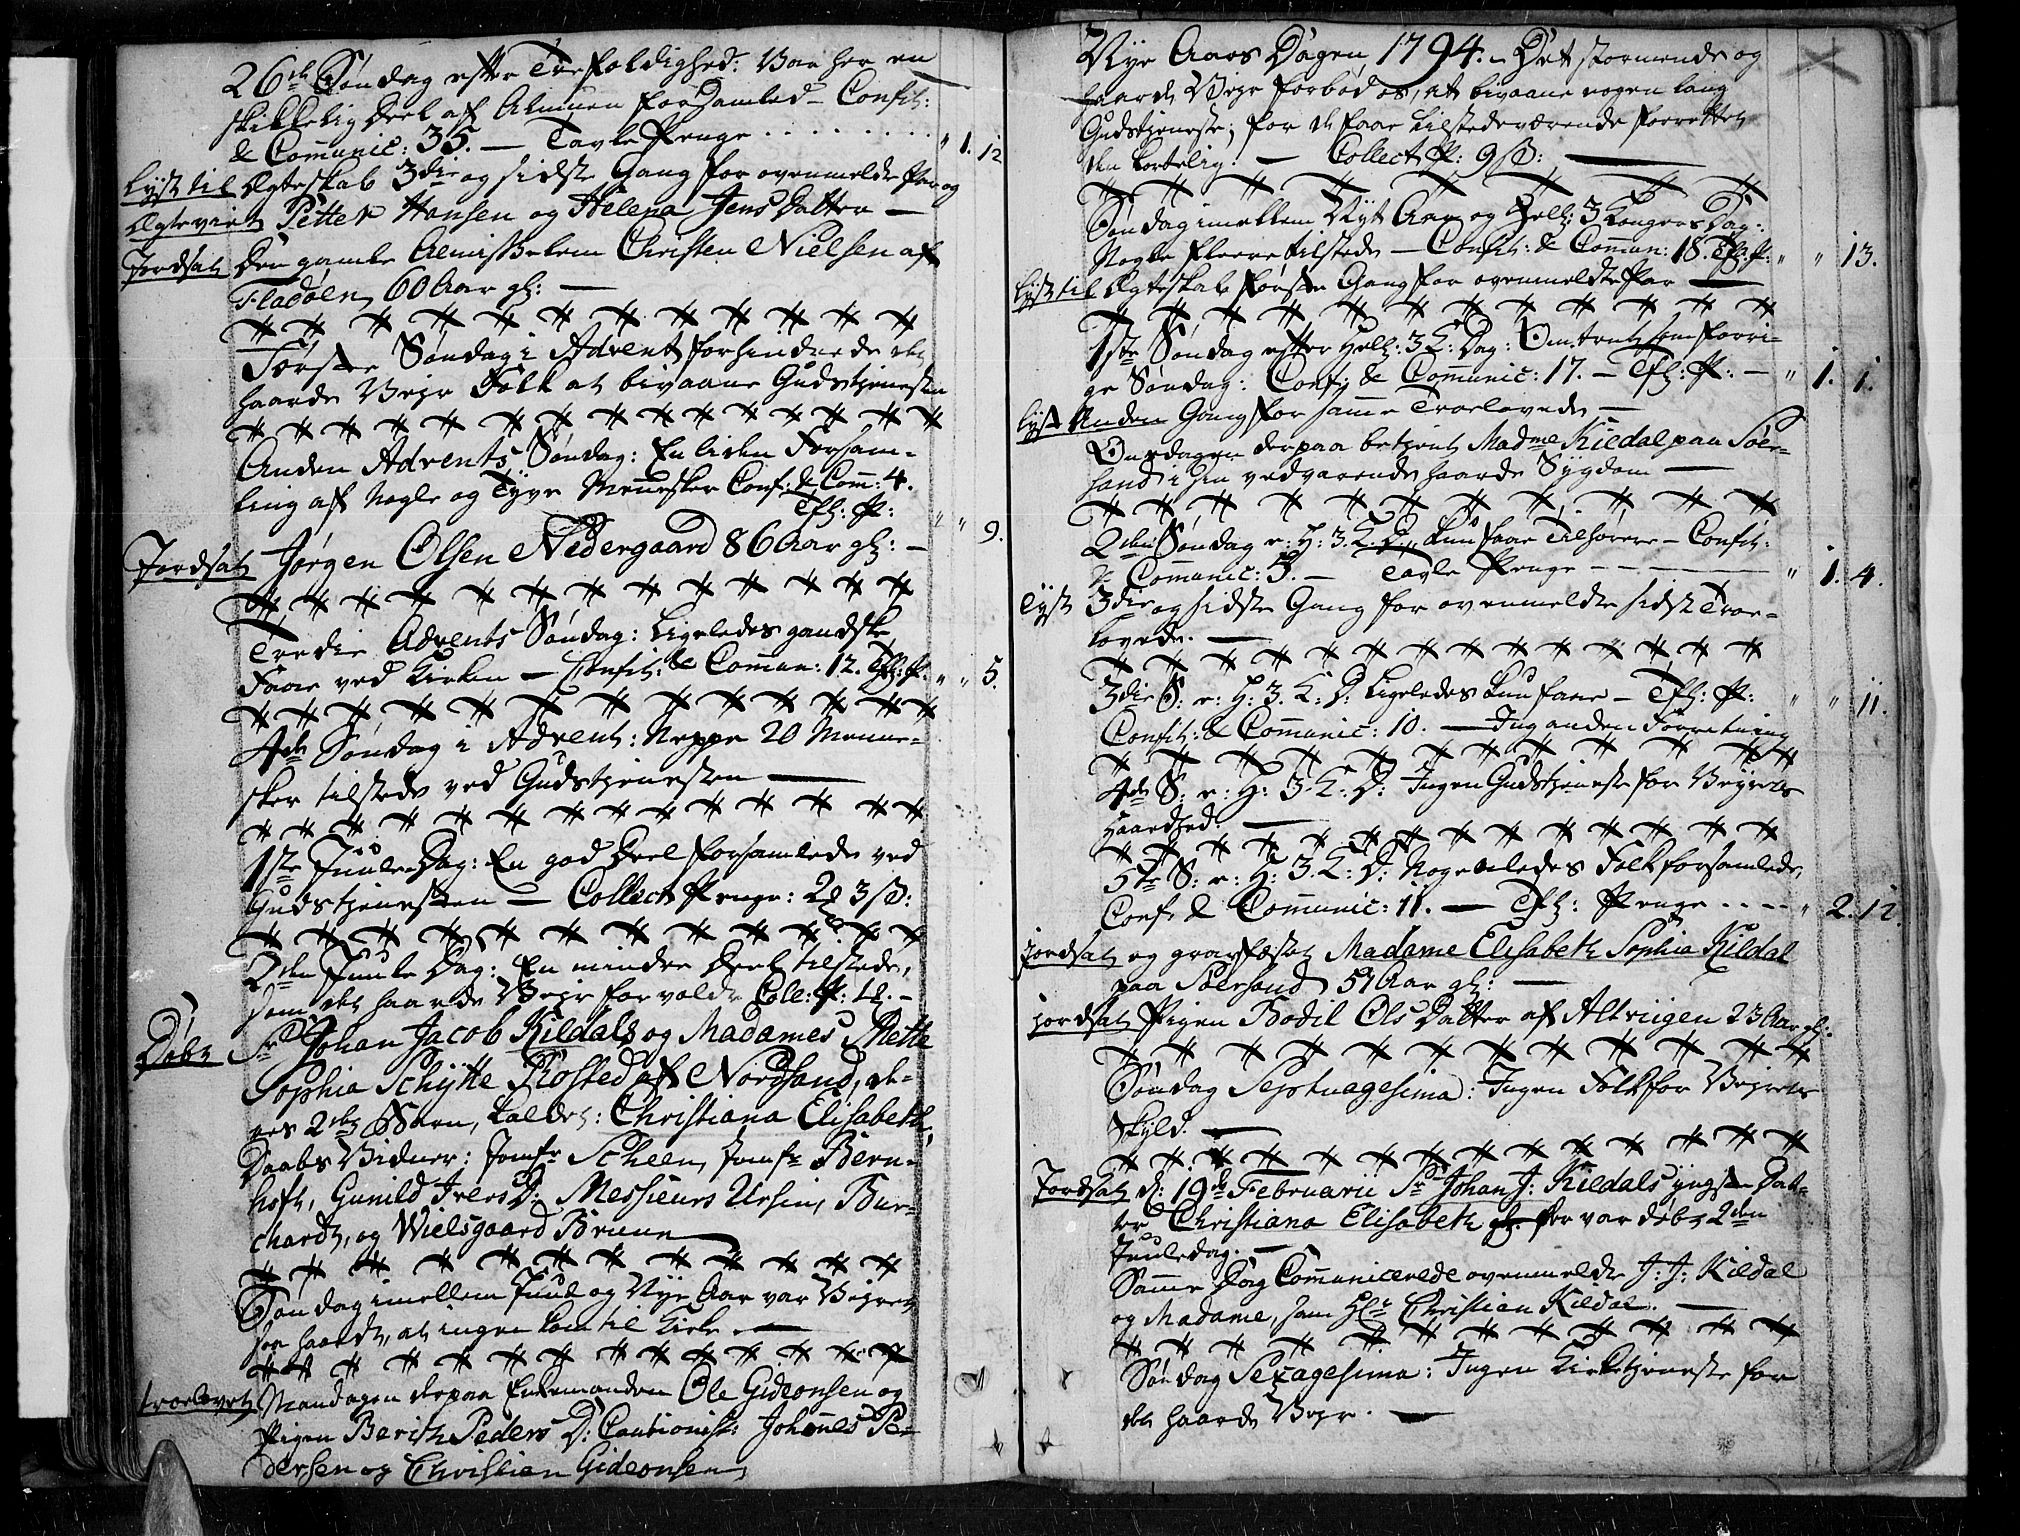 26de Søndag efter Trefoldighed: Var her en
skikkelig Deel af Almuen forsamled – Confit:
& Com̄unic: 35. – Tavle Penge . . . . . . . . . " 1. 12
Lyst til Ægteskab 3die og sidste Gang for ovenmeldte Par og
Ægteviet Petter Hansen og Helena Jens Datter –
Jordsat Den gamle Almisselem Christen Nielsen af
Fladøen, 60 Aar gl: –
Første Søndag i Advent forhindrede det
haarde Vejr Folk at bivaane Gudstjenesten
Anden Advents Søndag: En liden Forsam-
ling af Nogle og Tyve Mennesker Conf: & Com̄: 4.
Tfl: P: " " 9.
Jordsat Jørgen Olsen Nedergaard 86 Aar gl: –
Tredie Advents Søndag: Ligeledes gandske
Faae ved Kirken – Confit: & Com̄un: 12. Tfl: P. " " 5.
4de Søndag i Advent: Neppe 20 Menne-
sker tilstede ved Gudstjenesten –
1ste Juule Dag: En god Deel forsamlede ved
Gudstjenesten – Collect Penge: 2 3 ß:
2den Juule Dag: En mindre Deel tilstede,
som det haarde Vejr forvoldte Colle: P:
Døbt Sr Johan Jacob Kildals og Madames Mette
Sophia Schÿtte Rosted af Nordsand, de-
res 2det Barn, kaldet: Christiana Elisabeth,
Daabs Vidner: Jomfr Scheen, Jomfr Bern-
hoft, Gunild Ivers D: Messieurs Ursin, Bur-
chardt, og Wielsgaard Bruun
Søndag imellem Juul og Nye Aar var Vejret
saa haardt, at ingen kom til Kirke. –
Troelovet Mandagen derpaa Enkemanden Ole Gideonsen og
Pigen Berith Peders D: Cautionist: Johan̄es Pe-
dersen og Christian Gideonsen
Nye Aars Dagen 1794. – Det stormende og
haarde Vejr forbød os, at bivaane nogen lang
Gudstjeneste; for de faae tilstedeværende forrettet
den kortelig. – Collect P: 9 ß: –
Søndag imellem Nyt Aar og Hell: 3 Kongers Dag:
Nogle fleere tilstede – Confit: & Com̄un: 18. Tfl: P: " " 13.
Lyst til Ægteskab første Gang for ovenmeldte Par –
1ste Søndag efter Hell: 3 K: Dag: Omtrent som forri-
ge Søndag: Conf: & Com̄unic: 17. – Tfl: P: – " 1. 1.
Lyst Anden Gang for samme Troelovede –
Onsdagen derpaa betjent Madme Kildal paa Soer-
sand i sin vedvarende haarde Sygdom –
2den Søndag e: H: 3. K. D., kun faae Tilhørere – Confit:
& Com̄unic: 3. – Tavle Penge – – – – " 1. 4.
Lyst 3die og sidste Gang for ovenmeldte sidst Troe-
lovede. –
3die S: e: H: 3. K: D: Ligeledes kun faae – Tfl: P: " " 11.
Confit: & Com̄unic: 10. – Ingen anden Forretning
4de S: e: H: 3. K: D: Ingen Gudstjeneste for Vejrets
Haardhed. –
5te S: e: H: 3. K: D: Nogenledes Folk forsamlede,
Conf. & Com̄unic: 11. – Tfl: Penge . . – – " 2. 12.
Jordsat og gravfæstet Madame Elisabeth Sophia Kildal
paa Soersand 51 Aar gl: –
Jordsat Pigen Bodil Ols Datter af Altviigen 23 Aar gl:
Søndag Septuagesima: Ingen Folk for Vejrets
Skyld. –
Jordsat d: 19de Februarii Sr Johan J: Kildals yngste Dat-
ter Christiana Elisabeth der var døbt 2den
Juuledag. –
Samme Dag Com̄unicerede ovenmeldte J: J: Kildal
og Madame, sam Hr Christian Kildal. –
Søndag Sexagesima: Ingen Kirketjeneste for
det haarde Vejr. –